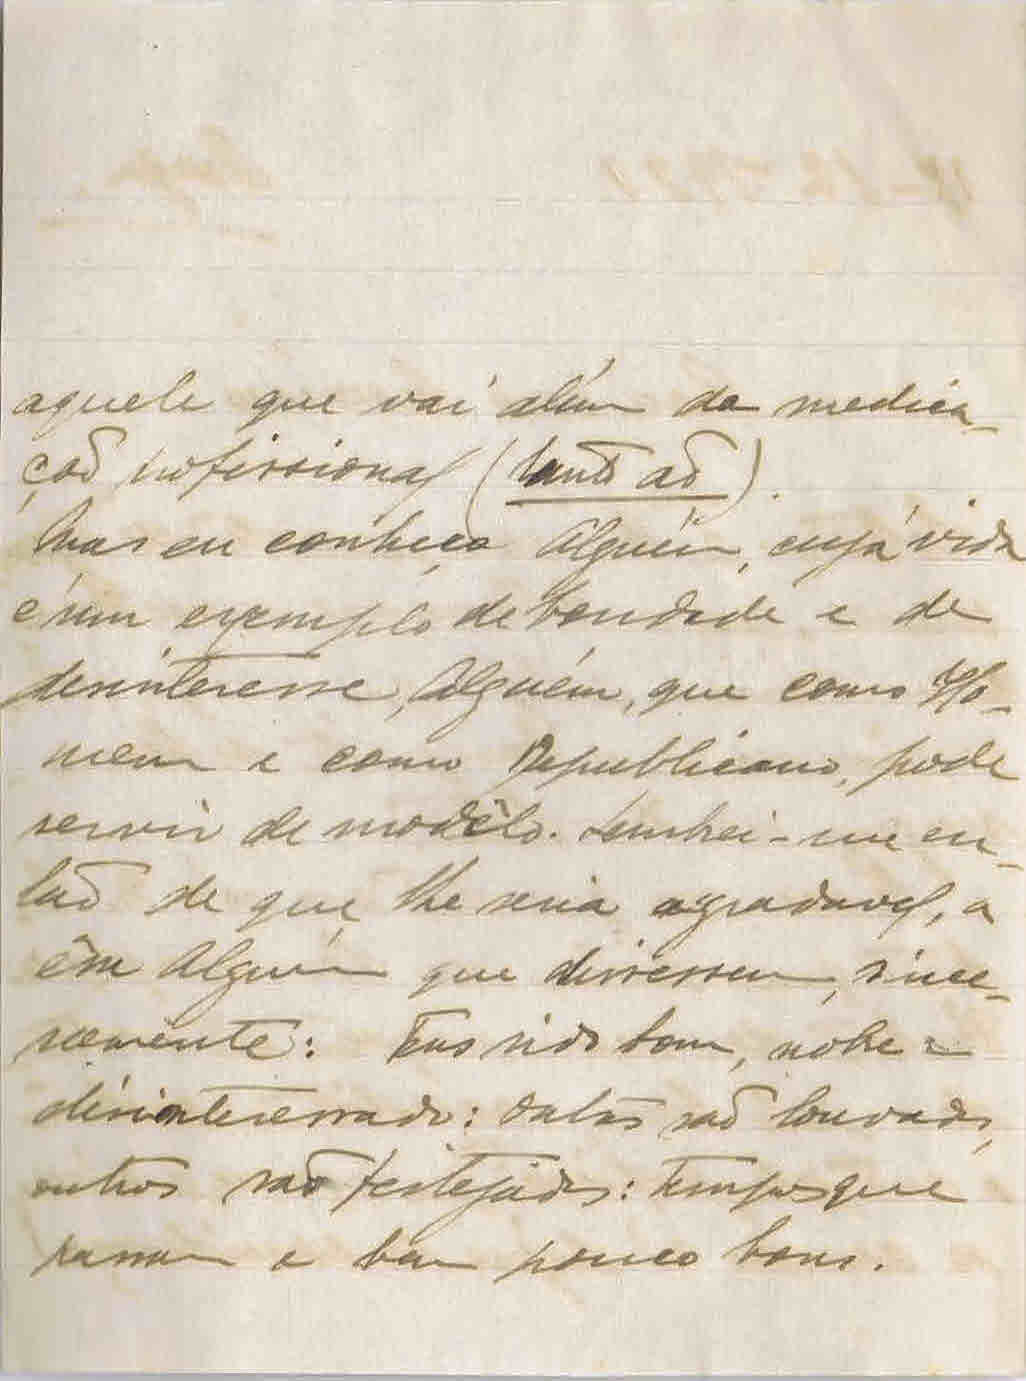 aquele que vai além da medica-
ção profissional (tanto ao).
Mas eu conheço Alguém, cuja vida
é um exemplo de bondade e de
desinteresse, Alguém, que como Ho-
mem e como Republicano, pode
servir de modêlo. Lembrei-me en-
tão de que lhe seria agradavel, a
êsse Alguém que dissessem, since-
ramente: Tens sido bom, nobre e
desinteressado: outros são louvados,
outros são festejados: tempos que
passam e bem pouco bons.